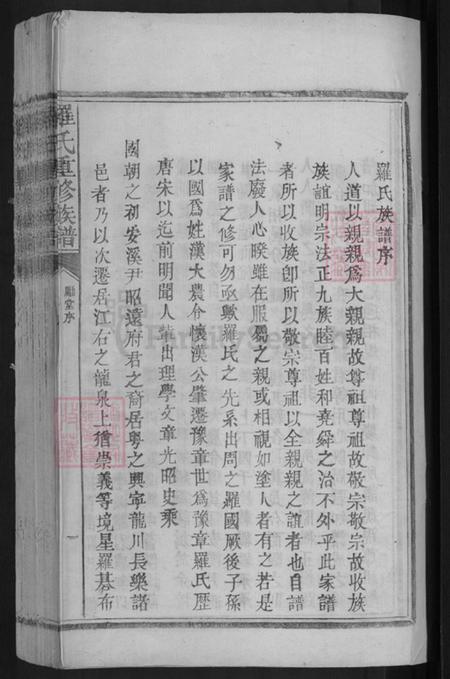 羅氏族譜序
人道以親親為大親親故尊祖尊祖故敬宗敬宗故收族
族誼明宗法正九族睦百姓和堯舜之治不外乎此家譜
者所以收族卽所以敬宗尊祖以全親親之誼者也自譜
法廢人心睽雖在服屬之親或相視如塗人者有之若是
家譜之修可勿亟歟羅氏之先系出周之羅國厥後子孫
以國為姓漢大農令懷漢公肇遷豫章世為豫章羅氏歷
唐宋以迄前明聞人輩出理學文章光昭史乘
國朝之初安溪尹昭遠府君之裔居粵之興寧龍川長樂諸
邑者乃以次遷居江右之龍泉上猶崇義等境星羅棊布
羅氏重修族譜
序
一
FamilySearch